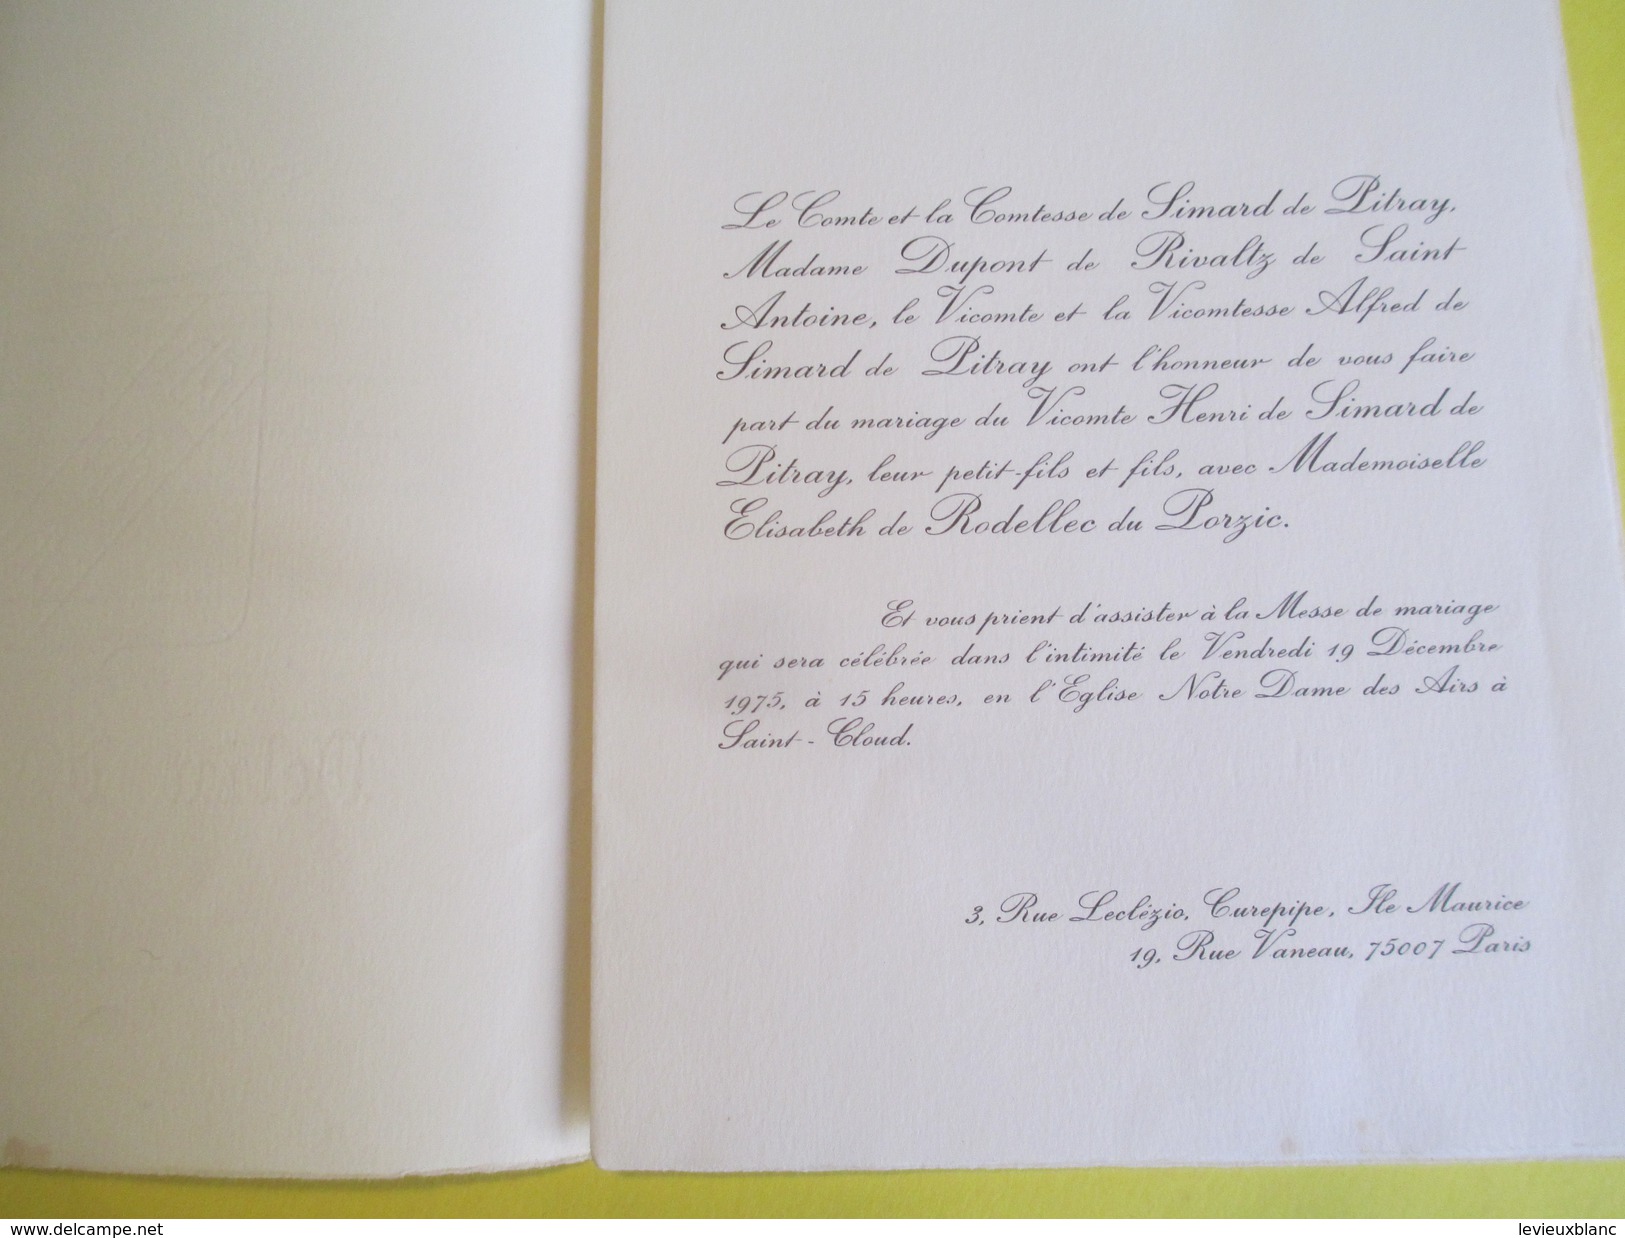 Le Comte et la Comtesse de Simard de Pitray,
Madame Dupont de Rivaltz de Saint
Antoine, le Vicomte et la Vicomtesse Alfred de
Simard de Pitray ont l'honneur de vous faire
part du mariage du Vicomte Henri de Simard de
Pitray, leur petit-fils et fils, avec Mademoiselle
Elisabeth de Rodellec du Porzic.
Et vous prient d'assister à la Messe de mariage
qui sera célébrée dans l'intimité le Vendredi 19 Décembre
1975, à 15 heures, en l'Eglise Notre Dame des Airs à
Saint-Cloud.
3, Rue Leclézio, Curepipe, Ile Maurice
19, Rue Vaneau, 75007 Paris
www.delcampe.net
levieuxblanc